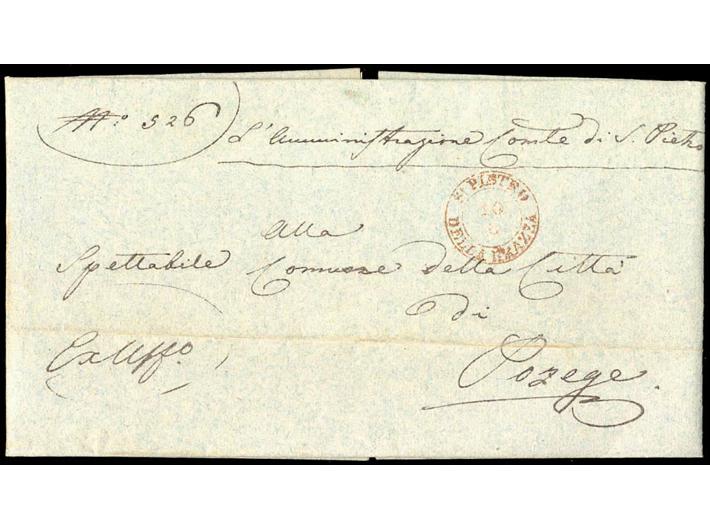 No: 526
L'Amministrazione Comle di S. Pietro
S. PIETRO
10
DELLA BRAZZA
Alla
Spettabile Comune della Città
di
Ex Uffo.
Pozege.